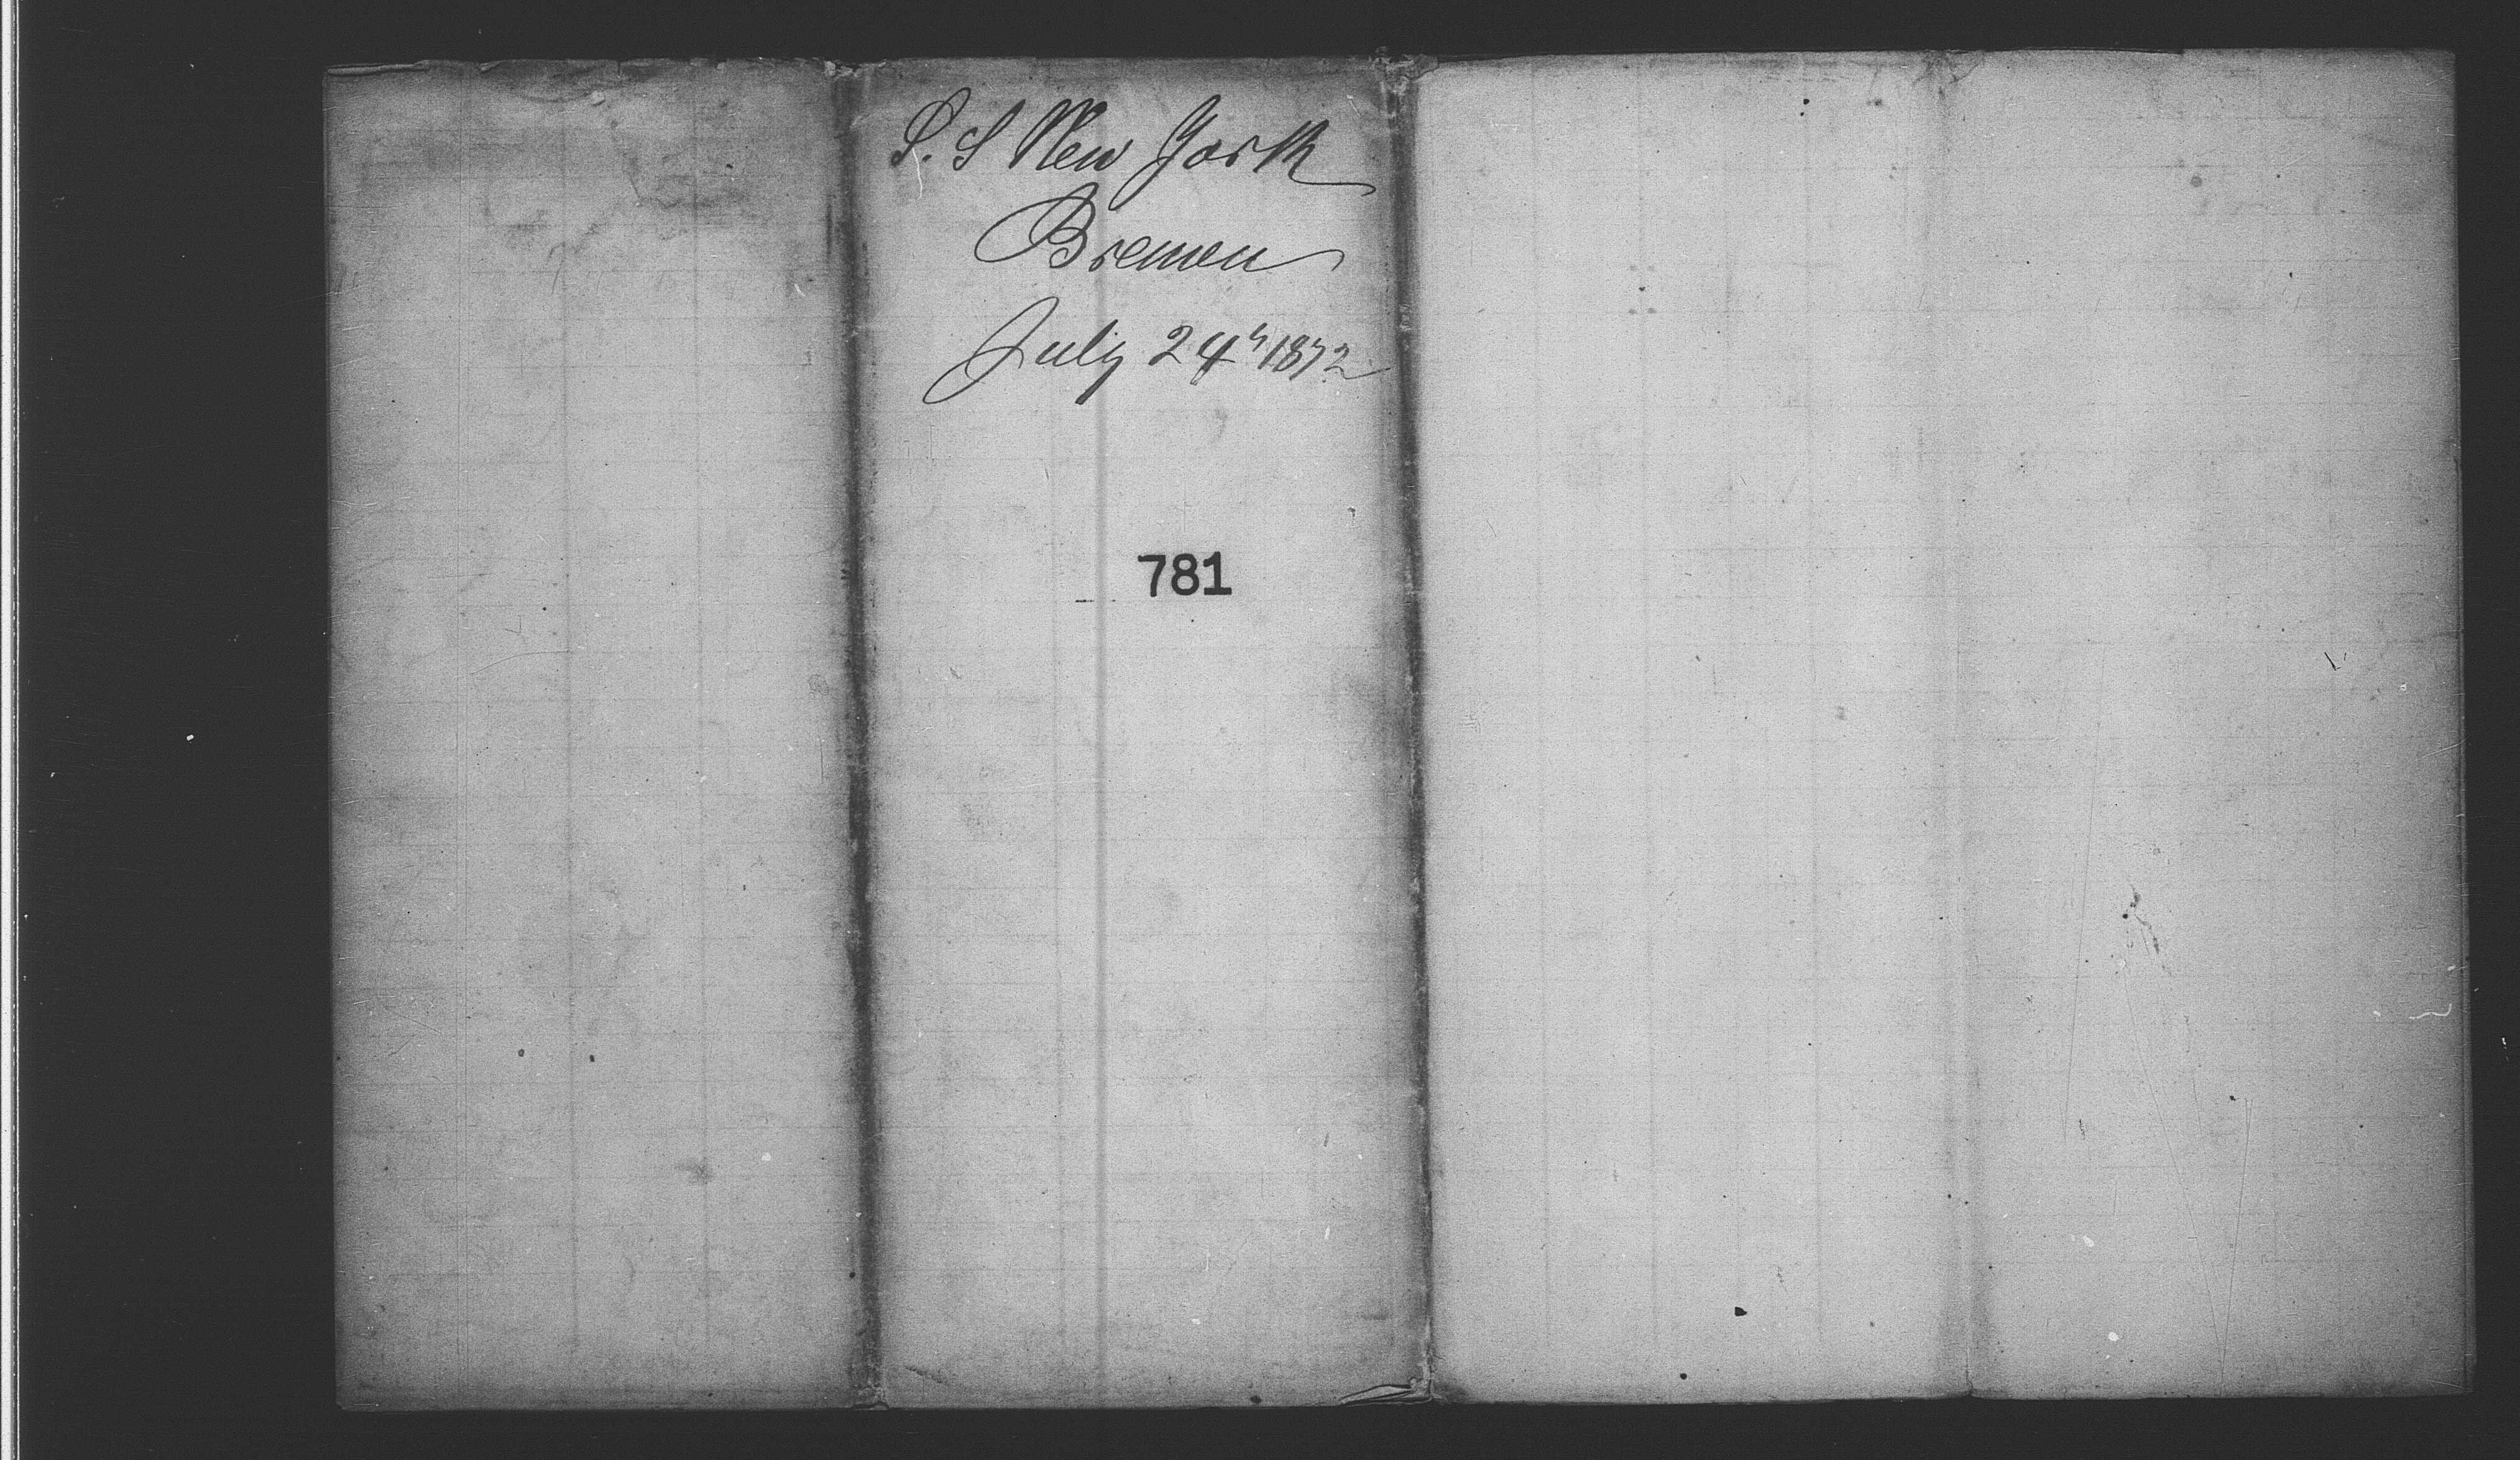 S. S New York
Bremen
July 24th 1872
781